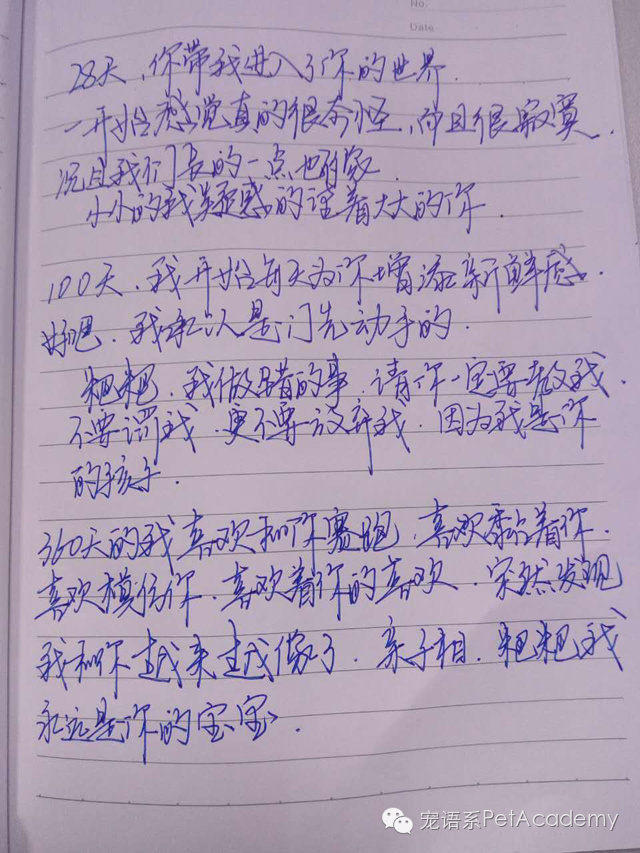 No.
Date
28天，你带我进入了你的世界.
一开始感觉真的很奇怪，而且很寂寞.
况且我们长的一点也不像.
小小的我疑惑的望着大大的你.
100天，我开始每天为你增添新鲜感.
好吧，我承认是门先动手的.
粑粑，我做错的事，请你一定要教我.
不要骂我，更不要放弃我，因为我是你
的孩子.
360天的我喜欢和你赛跑，喜欢黏着你.
喜欢模仿你，喜欢着你的喜欢，突然发现
我和你越来越像了，亲子相，粑粑我
永远是你的宝宝.
宠语系PetAcademy